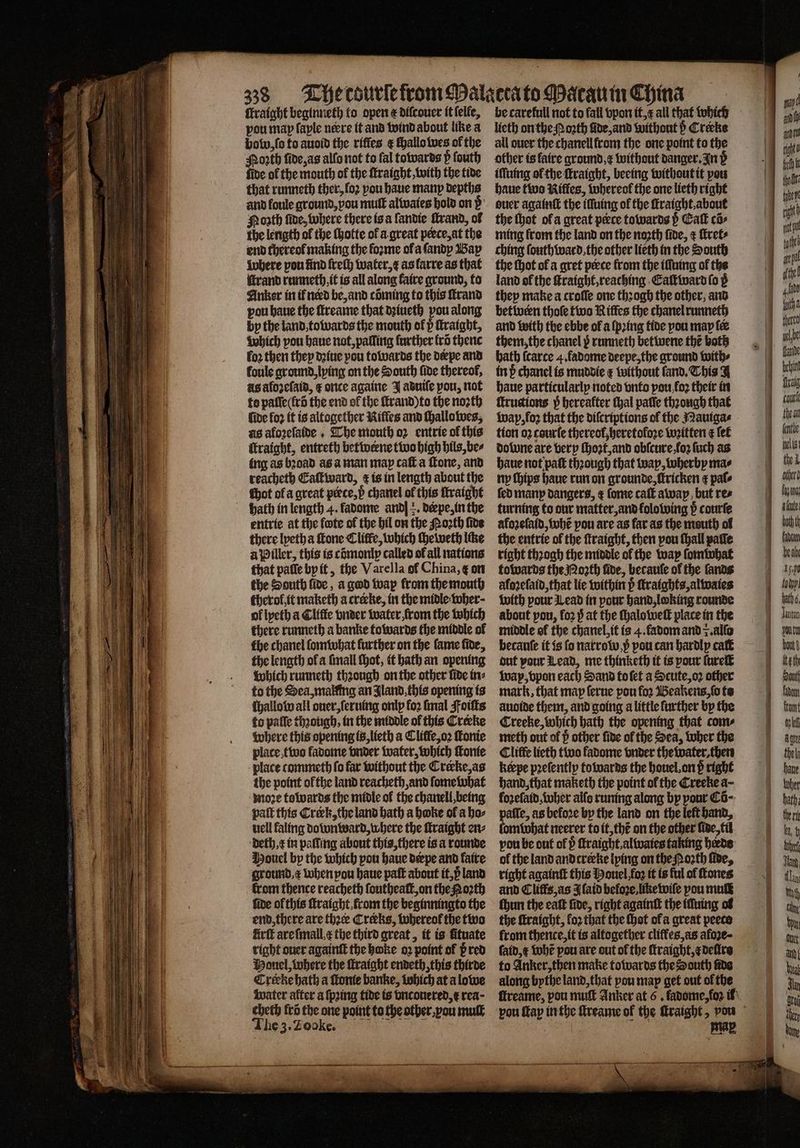 338 The course from Malacca to Macau in China
straight beginneth to open & discouer it selfe,
you may sayle neere it and wind about like a
bow, so to auoid the riffes & shallowes of the
North side, as also not to fal towards þͤ south
side of the mouth of the straight, with the tide
that runneth ther, for you haue many depths
and foule ground, you must alwaies hold on þͤ
North side, where there is a sandie strand, of
the length of the shotte of a great péece, at the
end thereof making the forme of a sandy Bay
where you find fresh water, & as farre as that
strand runneth, it is all along faire ground, to
Anker in if néed be, and cōming to this strand
you haue the streame that driueth you along
by the land, towards the mouth of þͤ straight,
which you haue not, passing further frō thence
for then they driue you towards the déepe and
foule ground, lying on the South side thereof,
as aforesaid, & once againe I aduise you, not
to passe (frō the end of the strand) to the north
side for it is altogether Riffes and shallowes,
as aforesaide. The mouth or entrie of this
straight, entreth betwéene two high hils, be-
ing as broad as a man may cast a stone, and
reacheth Eastward, & is in length about the
shot of a great péece, þͤ chanel of this straight
hath in length 4. fadome and ½. déepe, in the
entrie at the foote of the hil on the North side
there lyeth a stone Cliffe, which sheweth like
a Piller, this is cōmonly called of all nations
that passe by it, the Varella of China, & on
the South side, a good way from the mouth
therof, it maketh a créeke, in the midle wher-
of lyeth a Cliffe vnder water, from the which
there runneth a banke towards the middle of
the chanel somwhat further on the same side,
the length of a small shot, it hath an opening
which runneth through on the other side in-
to the Sea, making an Iland, this opening is
shallow all ouer, seruing only for smal Foists
to passe through, in the middle of this Créeke
where this opening is, lieth a Cliffe, or stonie
place, two fadome vnder water, which stonie
place commeth so far without the Créeke, as
the point of the land reacheth, and somewhat
more towards the midle of the chanell, being
past this Créek, the land hath a hooke of a ho-
uell faling downward, where the straight en-
deth, & in passing about this, there is a rounde
Houel by the which you haue déepe and faire
ground, & when you haue past about it, þͤ land
from thence reacheth southeast, on the North
side of this straight, from the beginning to the
end, there are thrée Créeks, whereof the two
first are small, & the third great, it is situate
right ouer against the hooke or point of þͤ red
Houel, where the straight endeth, this thirde
Créeke hath a stonie banke, which at a lowe
water after a spring tide is vncouered, & rea-
cheth frō the one point to the other, you must
The 3. Booke.
be carefull not to fall vpon it, & all that which
lieth on the North side, and without þͤ Créeke
all ouer the chanell from the one point to the
other is faire ground, & without danger. In þͤ
issuing of the straight, beeing without it you
haue two Riffes, whereof the one lieth right
ouer against the issuing of the straight, about
the shot of a great péece towards þͤ East cō-
ming from the land on the north side, & stret-
ching southwaed, the other lieth in the South
the shot of a gret péece from the issuing of the
land of the straight, reaching Eastward so þͭ
they make a crosse one through the other, and
betwéen those two Riffes the chanel runneth
and with the ebbe of a spring tide you may sée
them, the chanel þͭ runneth betwene thē both
hath scarce 4. fadome deepe, the ground with-
in þͤ chanel is muddie & without sand. This I
haue particularly noted vnto you for their in
structions þͭ hereafter shal passe through that
way, for that the discriptions of the Nauiga-
tion or course thereof, heretofore written & set
downe are very short, and obscure, for such as
haue not past through that way, wherby ma-
ny ships haue run on grounde, stricken & pas-
sed many dangers, & some cast away, but re-
turning to our matter, and folowing þͤ course
aforesaid, whē you are as far as the mouth of
the entrie of the straight, then you shall passe
right throgh the middle of the way somwhat
towards the North side, because of the sands
aforesaid, that lie within þͤ straights, alwaies
with your Lead in your hand, looking rounde
about you, for þͭ at the shalowest place in the
middle of the chanel, it is 4. fadom and ½. also
because it is so narrow, þͭ you can hardly cast
out your Lead, me thinketh it is your surest
way, vpon each Sand to set a Scute, or other
mark, that may serue you for Beakens, so to
auoide them, and going a little further by the
Creeke, which hath the opening that com-
meth out of þͤ other side of the Sea, wher the
Cliffe lieth two fadome vnder the water, then
kéepe presently towards the houel, on þͤ right
hand, that maketh the point of the Creeke a-
foresaid, wher also runing along by your Cō-
passe, as before by the land on the left hand,
somwhat neerer to it, thē on the other side, til
you be out of þͤ straight, alwaies taking héede
of the land and créeke lying on the North side,
right against this Houel, for it is ful of stones
and Cliffs, as I said before, likewise you must
shun the east side, right against the issuing of
the straight, for that the shot of a great peece
from thence, it is altogether cliffes, as afore-
said, & whē you are out of the straight, & desire
to Anker, then make towards the South side
along by the land, that you may get out of the
streame, you must Anker at 6. fadome, for if
you stay in the streame of the straight, you
may